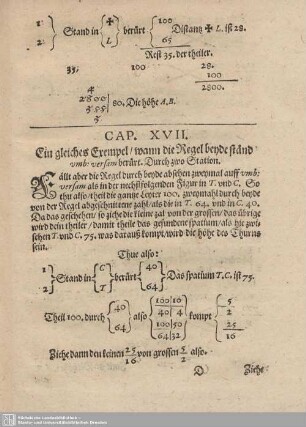 1 } Stand in { ✠ } berürt { 100 Distantz ✠ L. ist 28.
2 } { L } { 65
Rest 35. der theiler.
35. 100 28.
100
2800.
4
2800 | 80. Die höhe A.B.
355 |
3
CAP. XVII.
Ein gleiches Exempel / wann die Regel beyde ständ
vmb: versam berürt. Durch zwo Station.
Fällt aber die Regel durch beyde absehen zweymal auff vmb:
versam als in der nechstfolgenden Figur in T. vnd C. So
thu also / theil die gantze Leyter 100. zweymahl durch beyde
von der Regel abgeschnittene zahl / als die in T. 64. vnd in C. 40.
Da das geschehen / so ziehe die kleine zal von der grossen / das übrige
wird dein theiler / damit theile das gefundene spatium / als hie zwi-
schen T. vnd C. 75. was darauß kompt / wird die höhe des Thurns
sein.
Thue also:
1 } Stand in { C } berürt { 40 } Das spatium T.C. ist 75.
2 } { T } { 64 }
Theil 100. durch { 40 } also { 100|10 } kompt { 5
{ 64 } { 40|4 } { 2
{ 100|50 } { 25
{ 64|32 } { 16
Ziehe dann den kleinen 25/16 von grossen 5/2 also.
D Ziehe